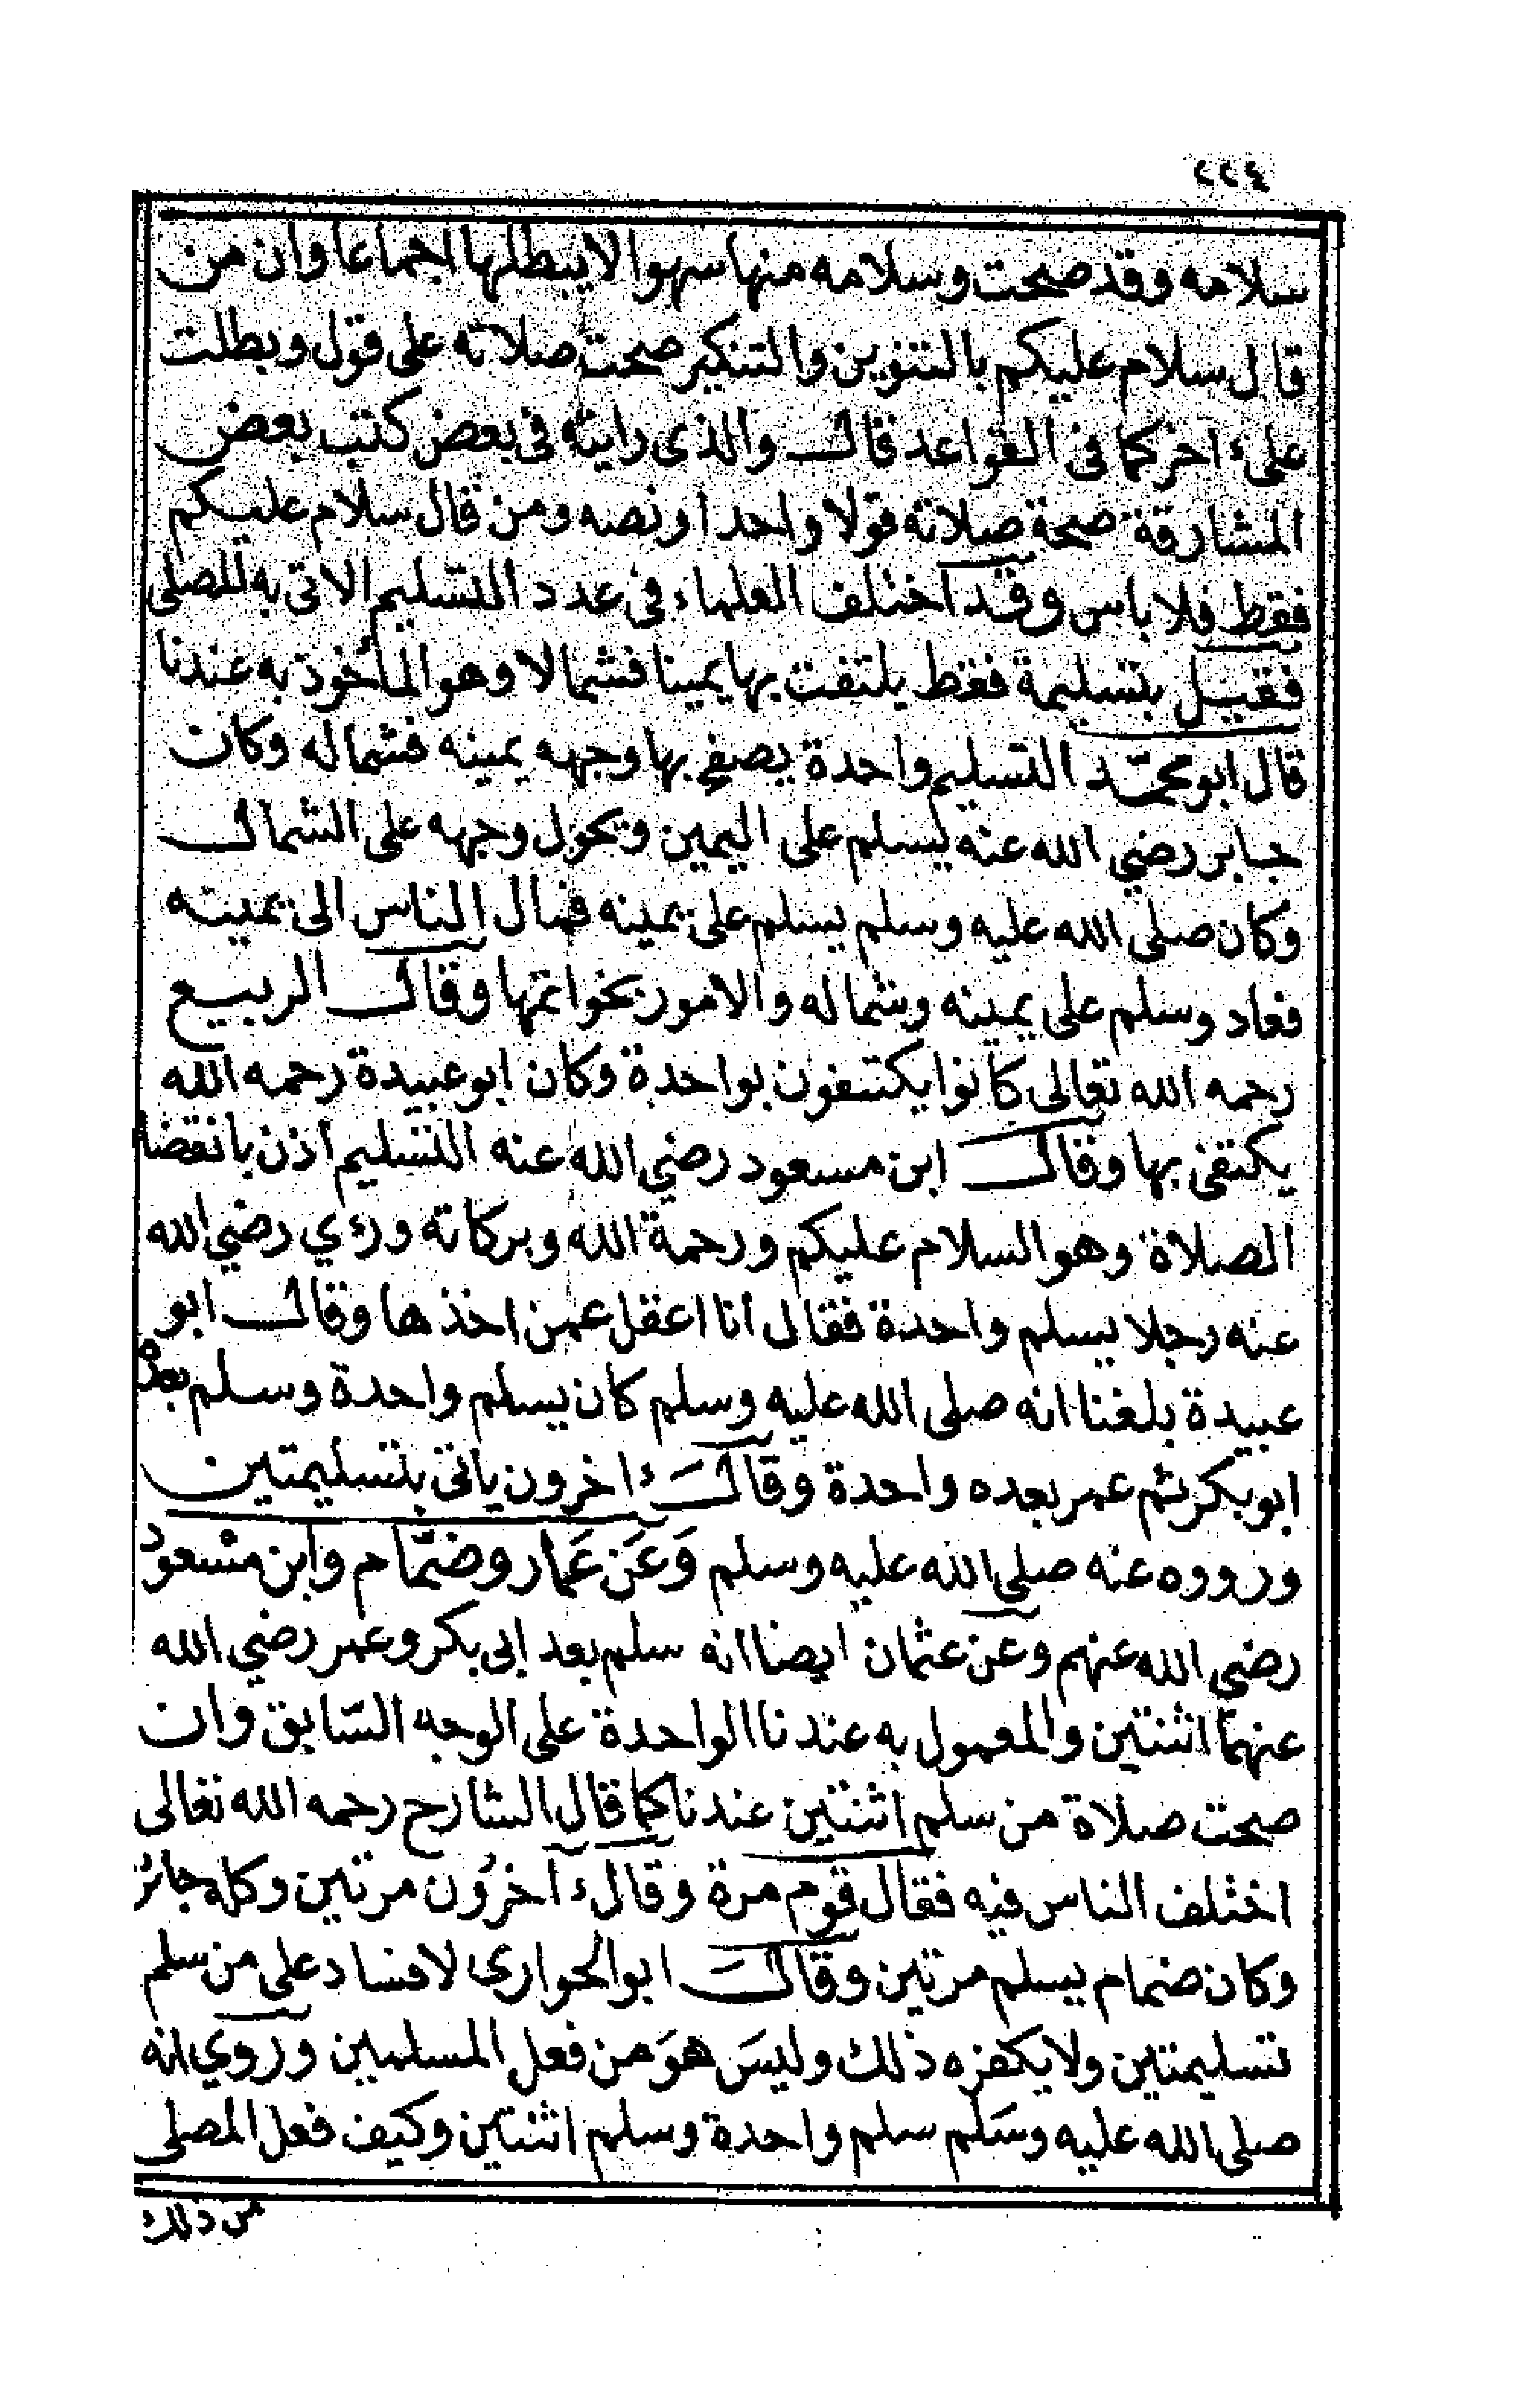 ٢٢٤
سلامه وقد صحت وسلامه منها سهوا لا يبطلها اجماعا وان من
قال سلام عليكم بالتنوين والتنكير صحت صلاته على قول وبطلت
علىء اخر كما في القواعد قال والذى رايته في بعض كتب بعض
المشارقة صحة صلاته قولا واحدا ونصه ومن قال سلام عليكم
فقط فلا باس وقد اختلف العلماء في عدد التسليم الاتى به للصلى
فقيل بتسليمة فقط يلتفت بها يمينا فشمالا وهو المأخوذ به عندنا
قال ابو محمّد التسليم واحدة يصفح بها وجهه يمينه فشماله وكان
جابر رضي الله عنه يسلم على اليمين ويحول وجهه على الشمال
وكان صلى الله عليه وسلم يسلم على يمينه فمال الناس الى يمينه
فعاد وسلم على يمينه وشماله والامور بخواتمها وقال الربيع
رحمه الله تعالى كانوا يكتفون بواحدة وكان ابو عبيدة رحمه الله
يكتفى بها وقال ابن مسعود رضي الله عنه التسليم اذن بانقضا
الصلاة وهو السلام عليكم ورحمة الله وبركاته ورءي رضي الله
عنه رجلا يسلم واحدة فقال انا اعقل عمن اخذها وقال ابو
عبيدة بلغنا انه صلى الله عليه وسلم كان يسلم واحدة وسلم بعده
ابو بكر ثم عمر بعده واحدة وقال ءاخرون ياتى بتسليمتين
ورووه عنه صلى الله عليه وسلم وَعَن عَمّار وضمّام وابن مسعود
رضي الله عنهم وعن عثمان ايضا انه سلم بعد ابى بكر وعمر رضي الله
عنهما اثنتين والمعمول به عندنا الواحدة على الوجه السّابق وان
صحت صلاة من سلم اثنتين عندنا كما قال الشارح رحمه الله تعالى
اختلف الناس فيه فقال قوم مرة وقال ءاخرون مرتين وكله جائز
وكان ضمام يسلم مرتين وقال ابو الحوارى لا فساد على من سلم
تسليمتين ولا يكفره ذلك وليسَ هوَ من فعل المسلمين وروي انه
صلى الله عليه وسَلم سلم واحدة وسلم اثنتين وكيف فعل المصلى
من ذلك